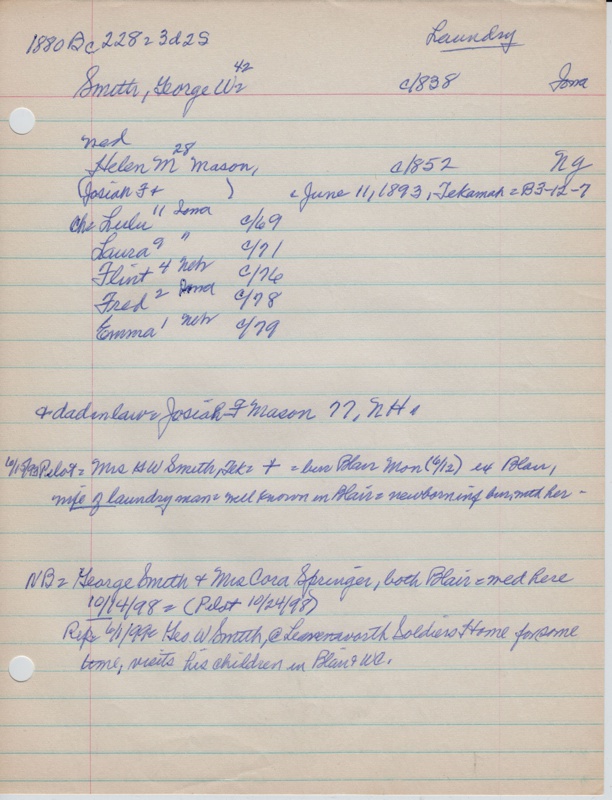 1880 Bc 228 = 3d 2S Laundry
Smith, George W = 42 c/1838 Iowa
med
Helen M 28 Mason, c/1852 Ny
(Josiah F + ) = June 11, 1893, Tekamah = B3-12-7
Ch = Lulu 11 Iowa c/69
Laura 9 " c/71
Flint 4 Neb c/76
Fred 2 Iowa c/78
Emma 1 Neb c/79
+ dad in law = Josiah F Mason 77, NH.
Pilot = Mrs HW Smith, Tek = + = bur Blair Mon (6/12) ex Blair,
wife of laundry man = well known in Blair = newborn inf bur, with her -
NB = George Smith + Mrs Cora Springer, both Blair = med here
10/14/98 = (Pilot 10/24/98)
Rep = 6/1/99 = Geo W Smith, @ Leavenworth Soldiers Home for some
time, visits his children in Blair + WC.